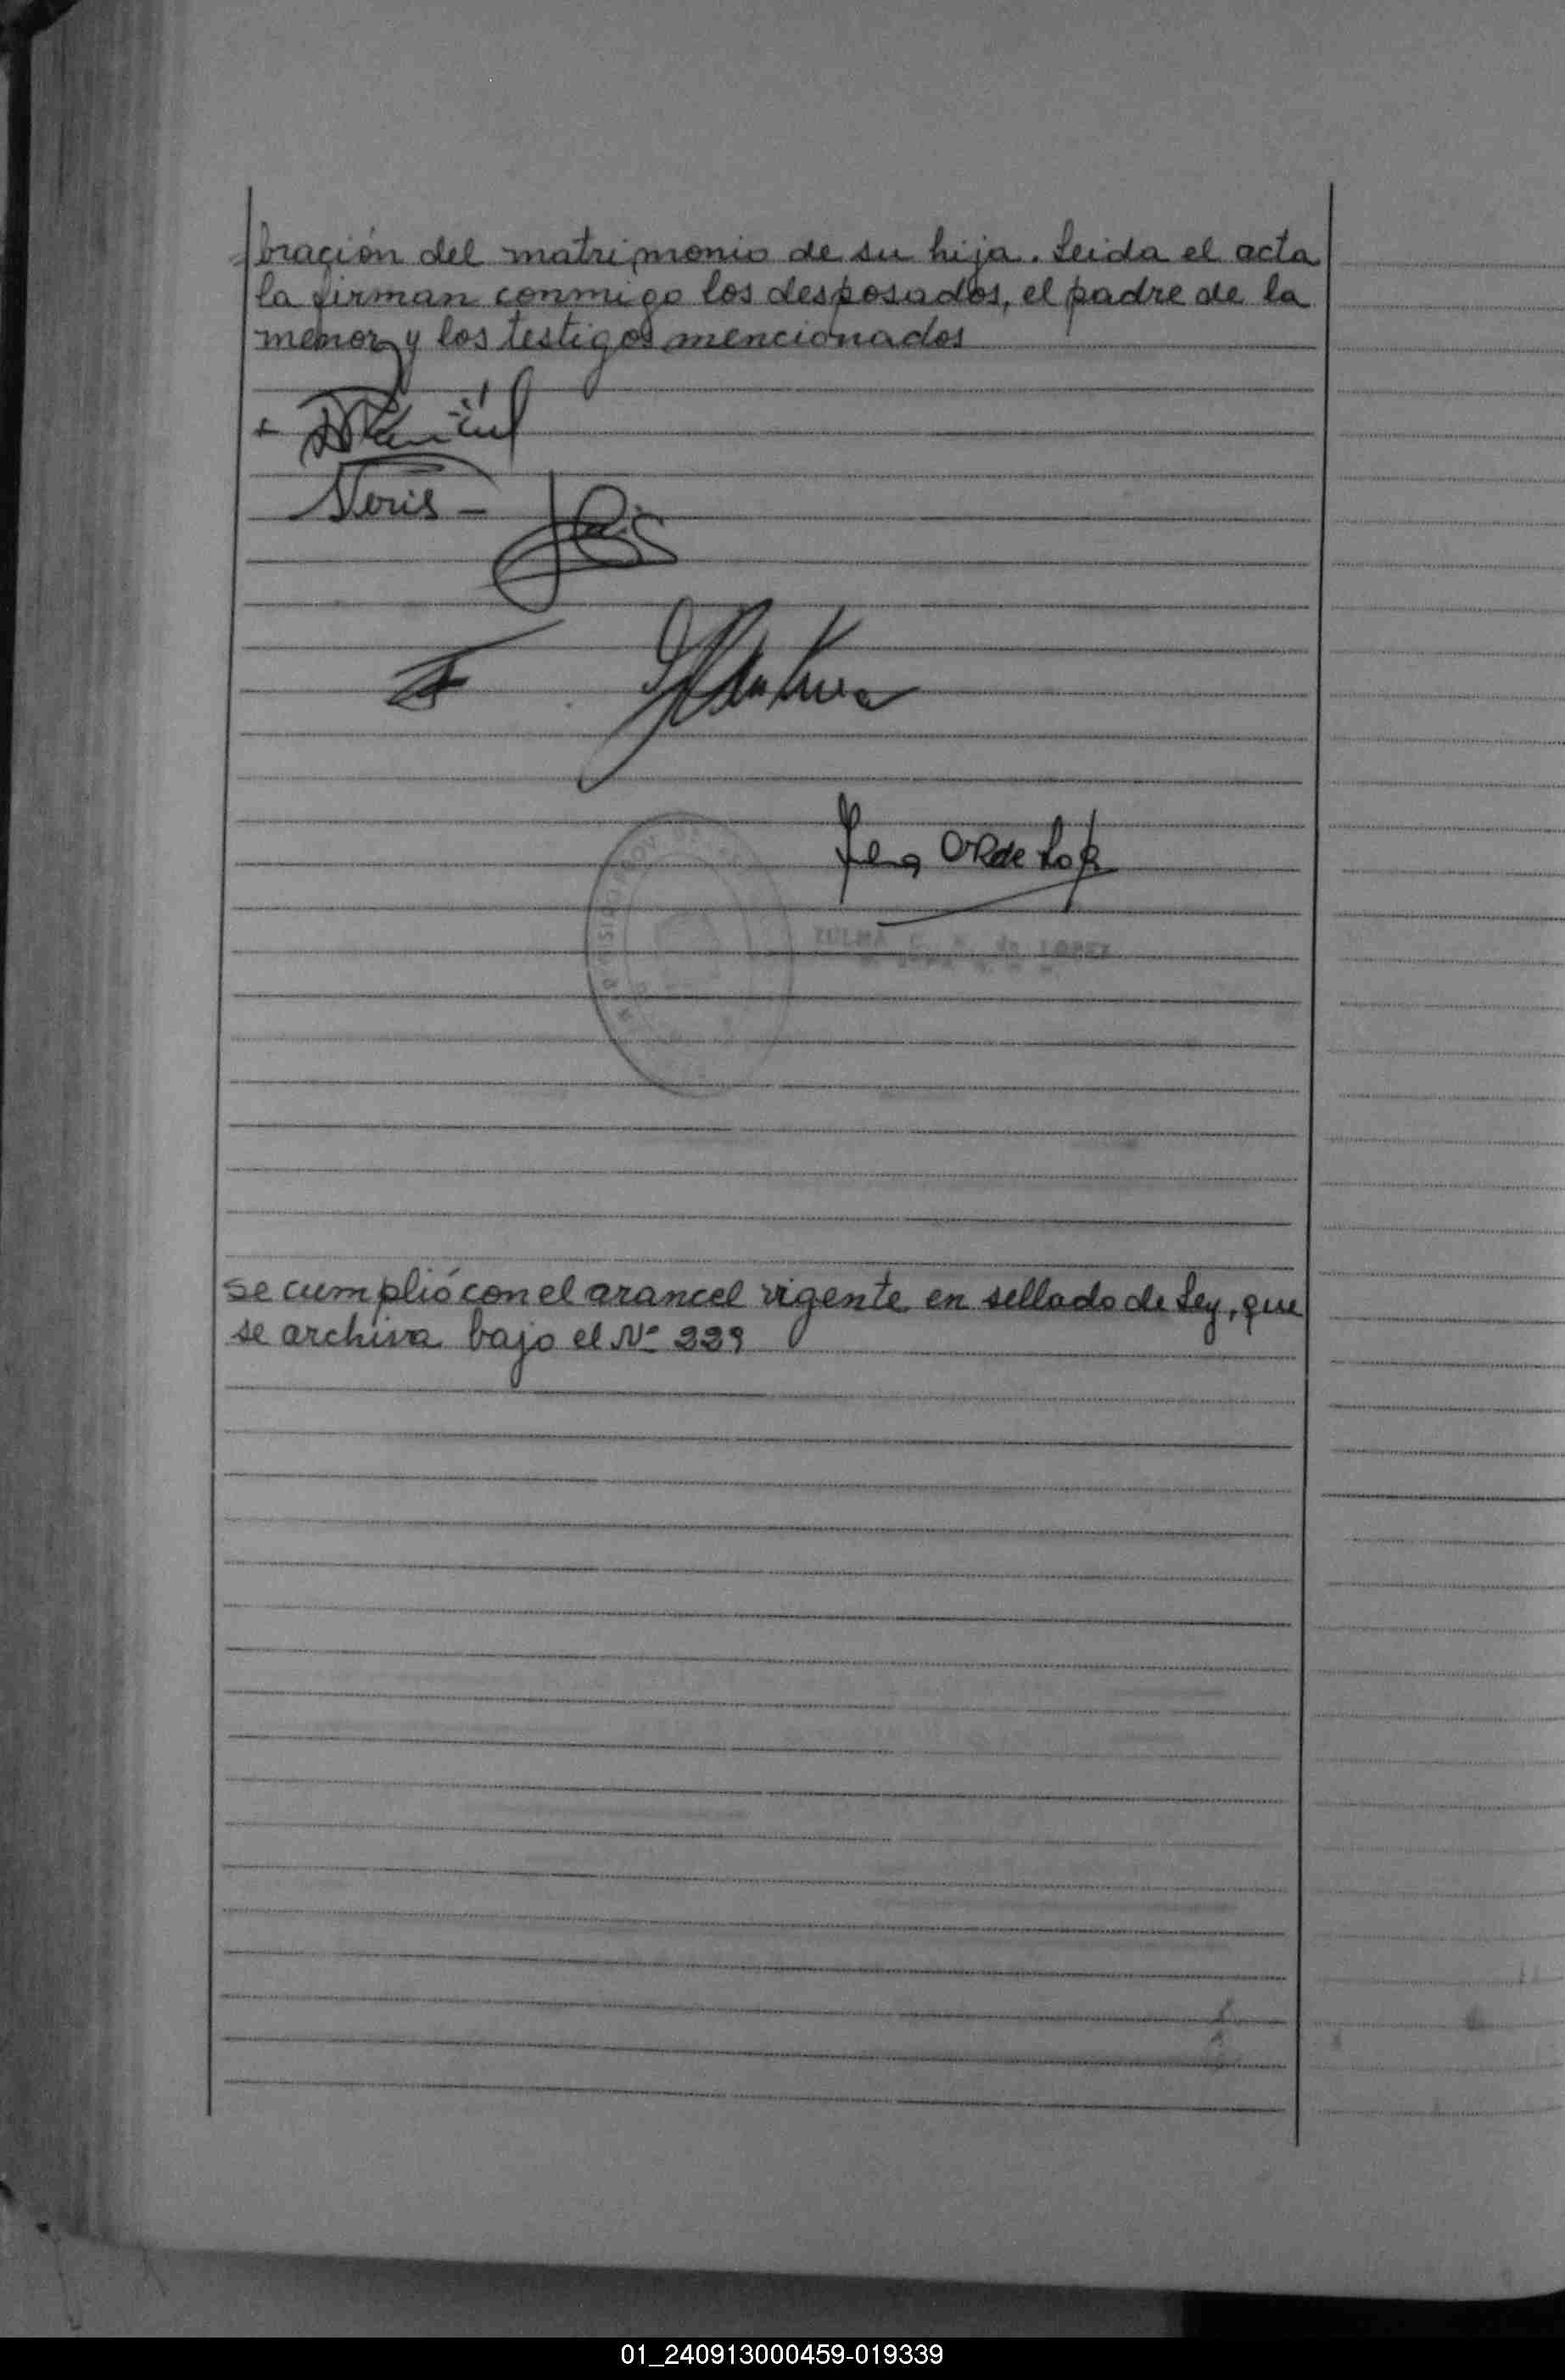 bración del matrimonio de su hija. Leida el acta
la firman conmigo los desposados, el padre de la
menor y los testigos mencionados
Neris -
ZULMA C. R. de LOPEZ
se cumplió con el arancel vigente en sellado de Ley, que
se archiva bajo el Nº 339
01_240913000459-019339